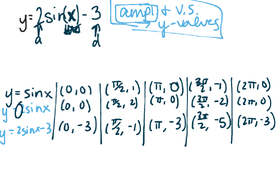 y=2sin(x)-3
a d
amp & V.S.
y-values
y=sinx (0,0) (π/2, 1) (π, 0) (3π/2, -1) (2π, 0)
y=2sinx (0,0) (π/2, 2) (π, 0) (3π/2, -2) (2π, 0)
y=2sinx-3 (0,-3) (π/2, -1) (π, -3) (3π/2, -5) (2π, -3)